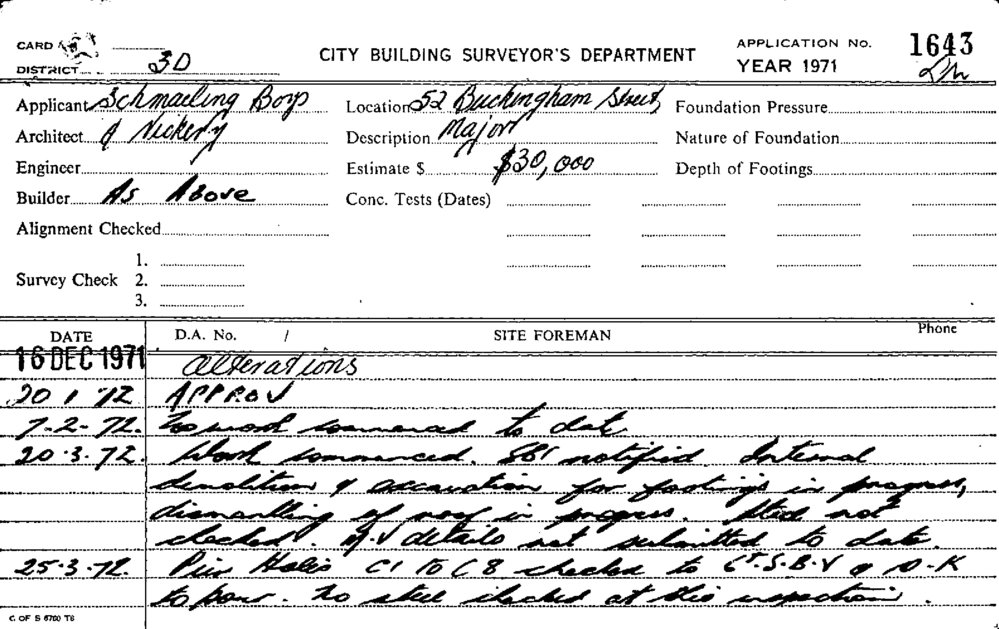 CARD
DISTRICT 3D
CITY BUILDING SURVEYOR'S DEPARTMENT
APPLICATION No. 1643
YEAR 1971
Applicant Schmaeling Bors
Location 52 Buckingham Street
Foundation Pressure
Architect & Vickery
Description Major
Nature of Foundation
Engineer
Estimate $ $30,000
Depth of Footings
Builder As Above
Conc. Tests (Dates)
Alignment Checked
Survey Check 1.
2.
3.
DATE D.A. No. / SITE FOREMAN Phone
16 DEC 1971 Alterations
20 1 72 APPROV
7-2-72. No work commenced to date
20.3.72. Work commenced. notified. Internal
demolition & excavation for footings in progress,
dismantling of roof in progress. Steel not
checked. M.V details not submitted to date.
25.3.72. Pier Holes C1 TO C8 checked to & O-K
to pour. No steel checked at this inspection.
C. OF S 6760 T6